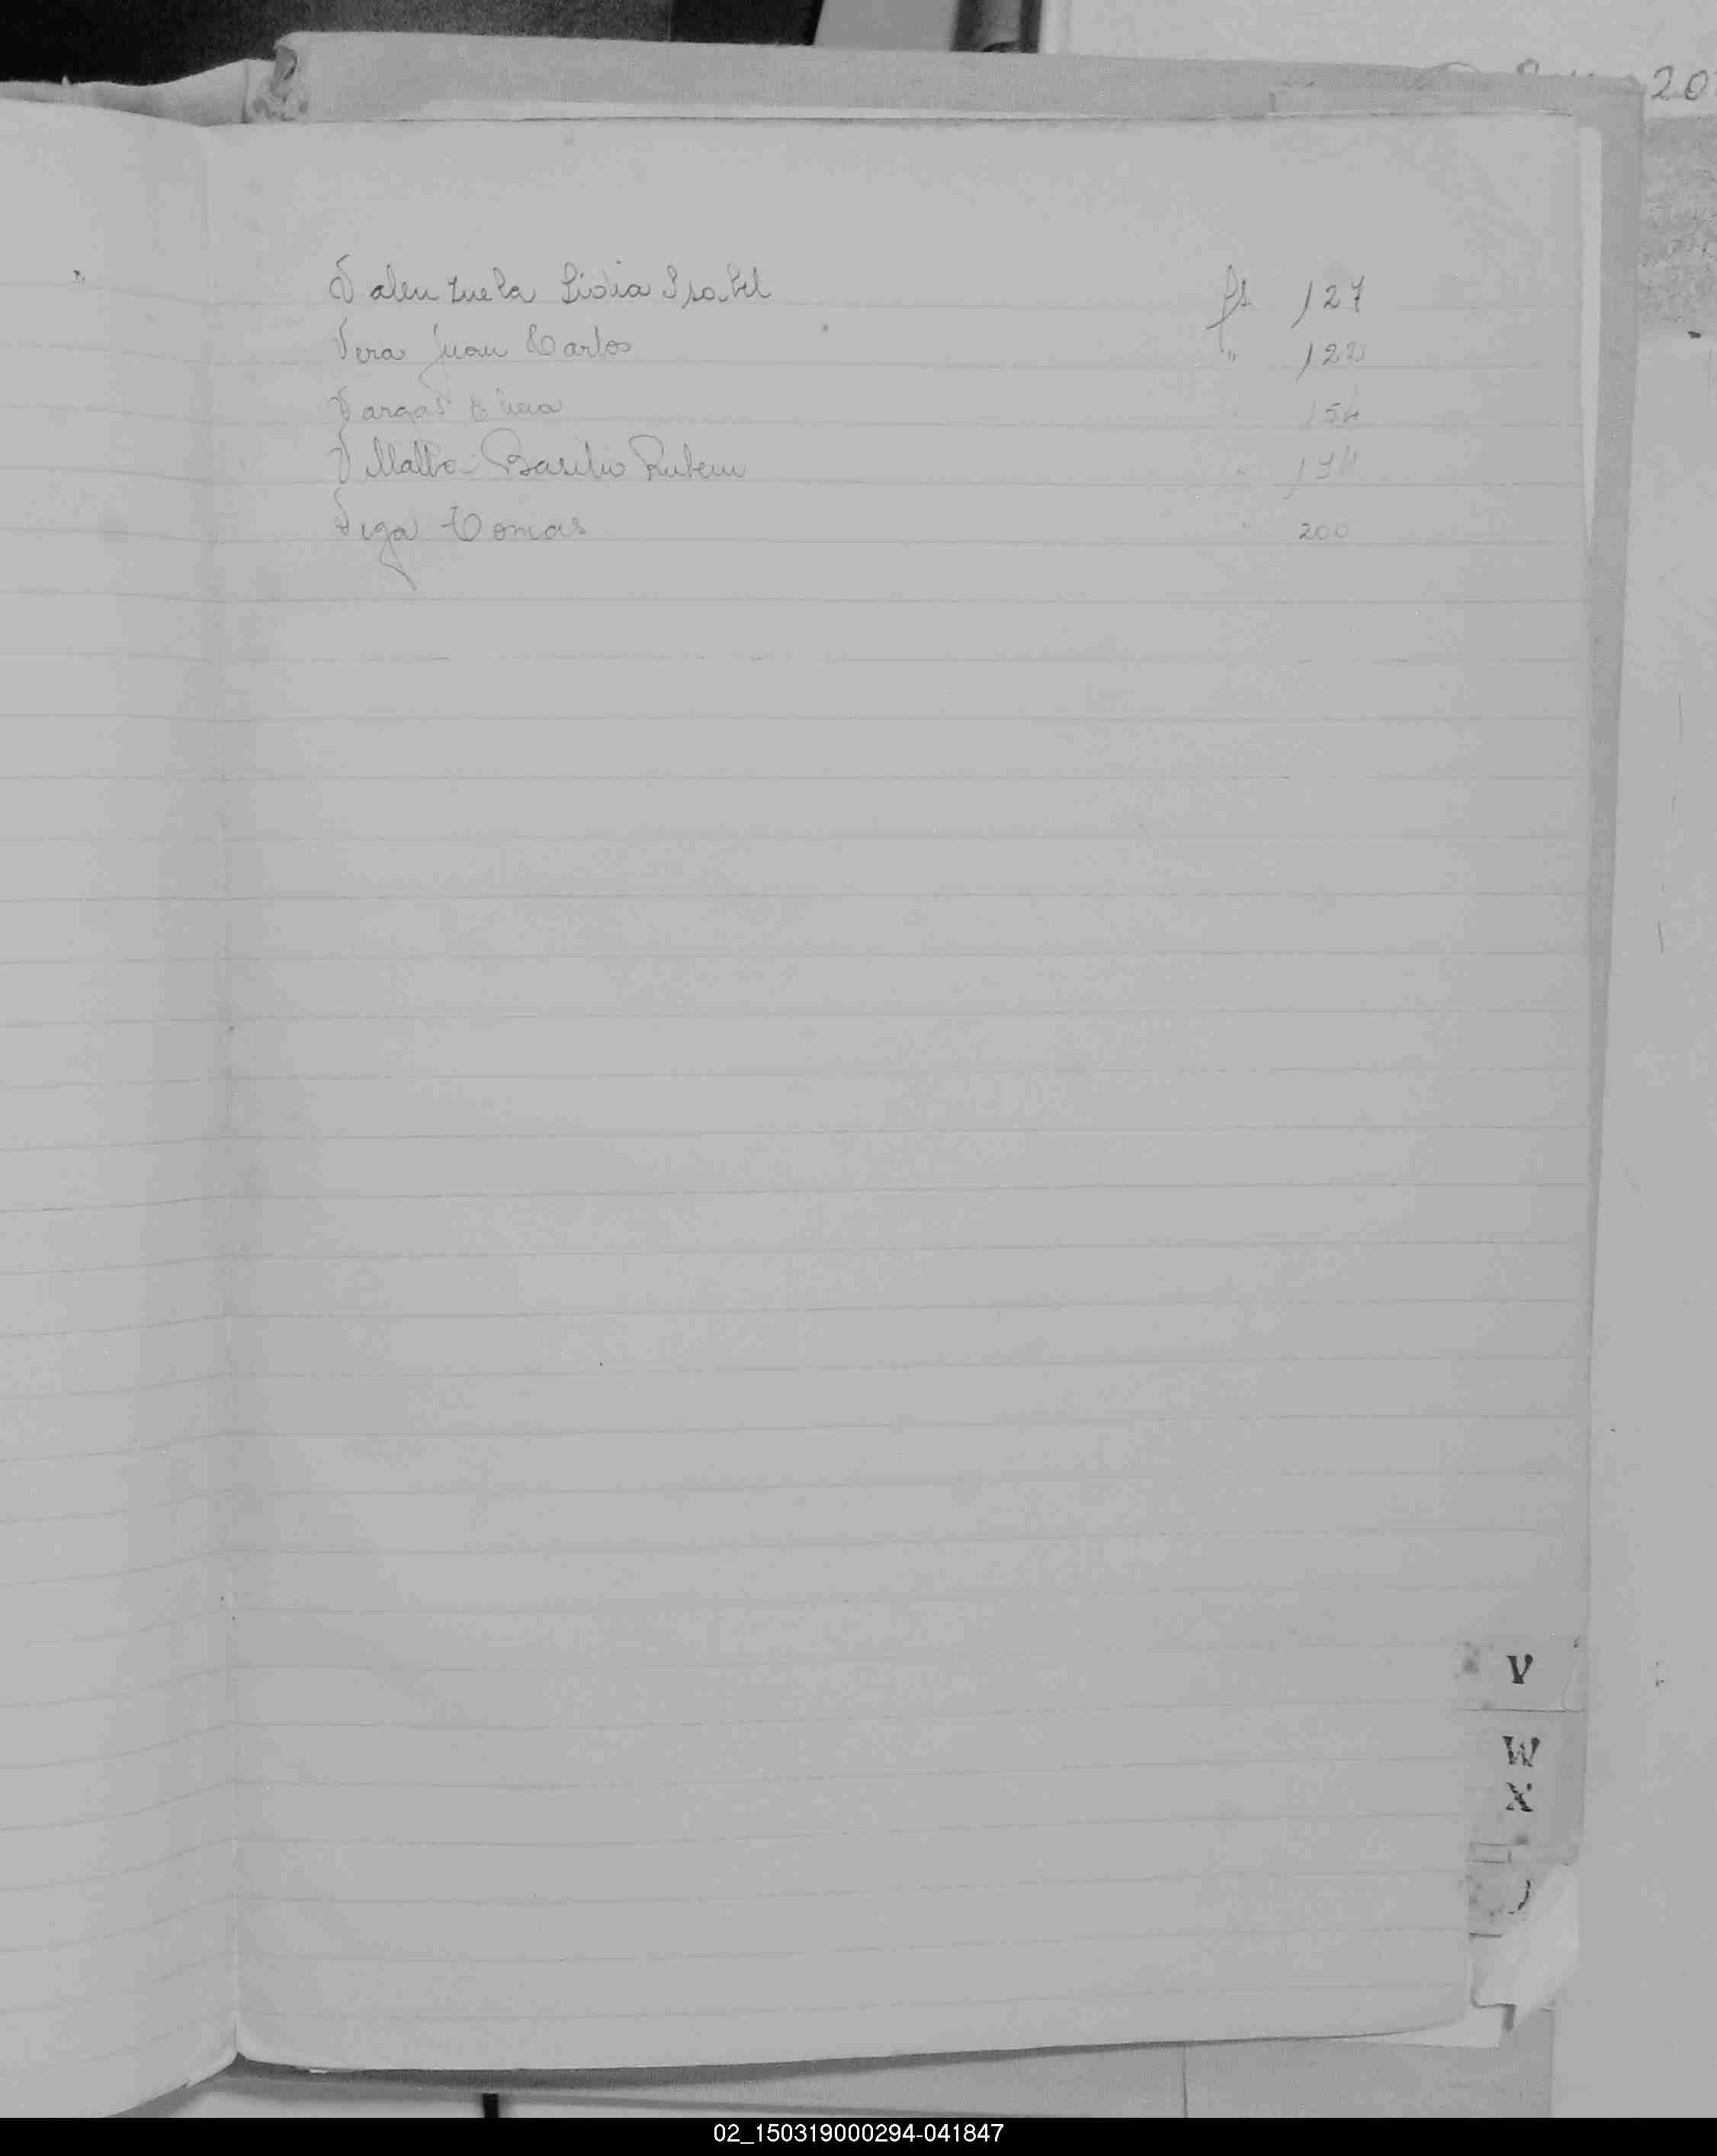 Valenzuela Lidia Isabel fs. 127
Vera Juan Carlos " 122
Vargas 154
Villalba Basilio Ruben "
Vega Tomas " 200
V
W
X
02_150319000294-041847